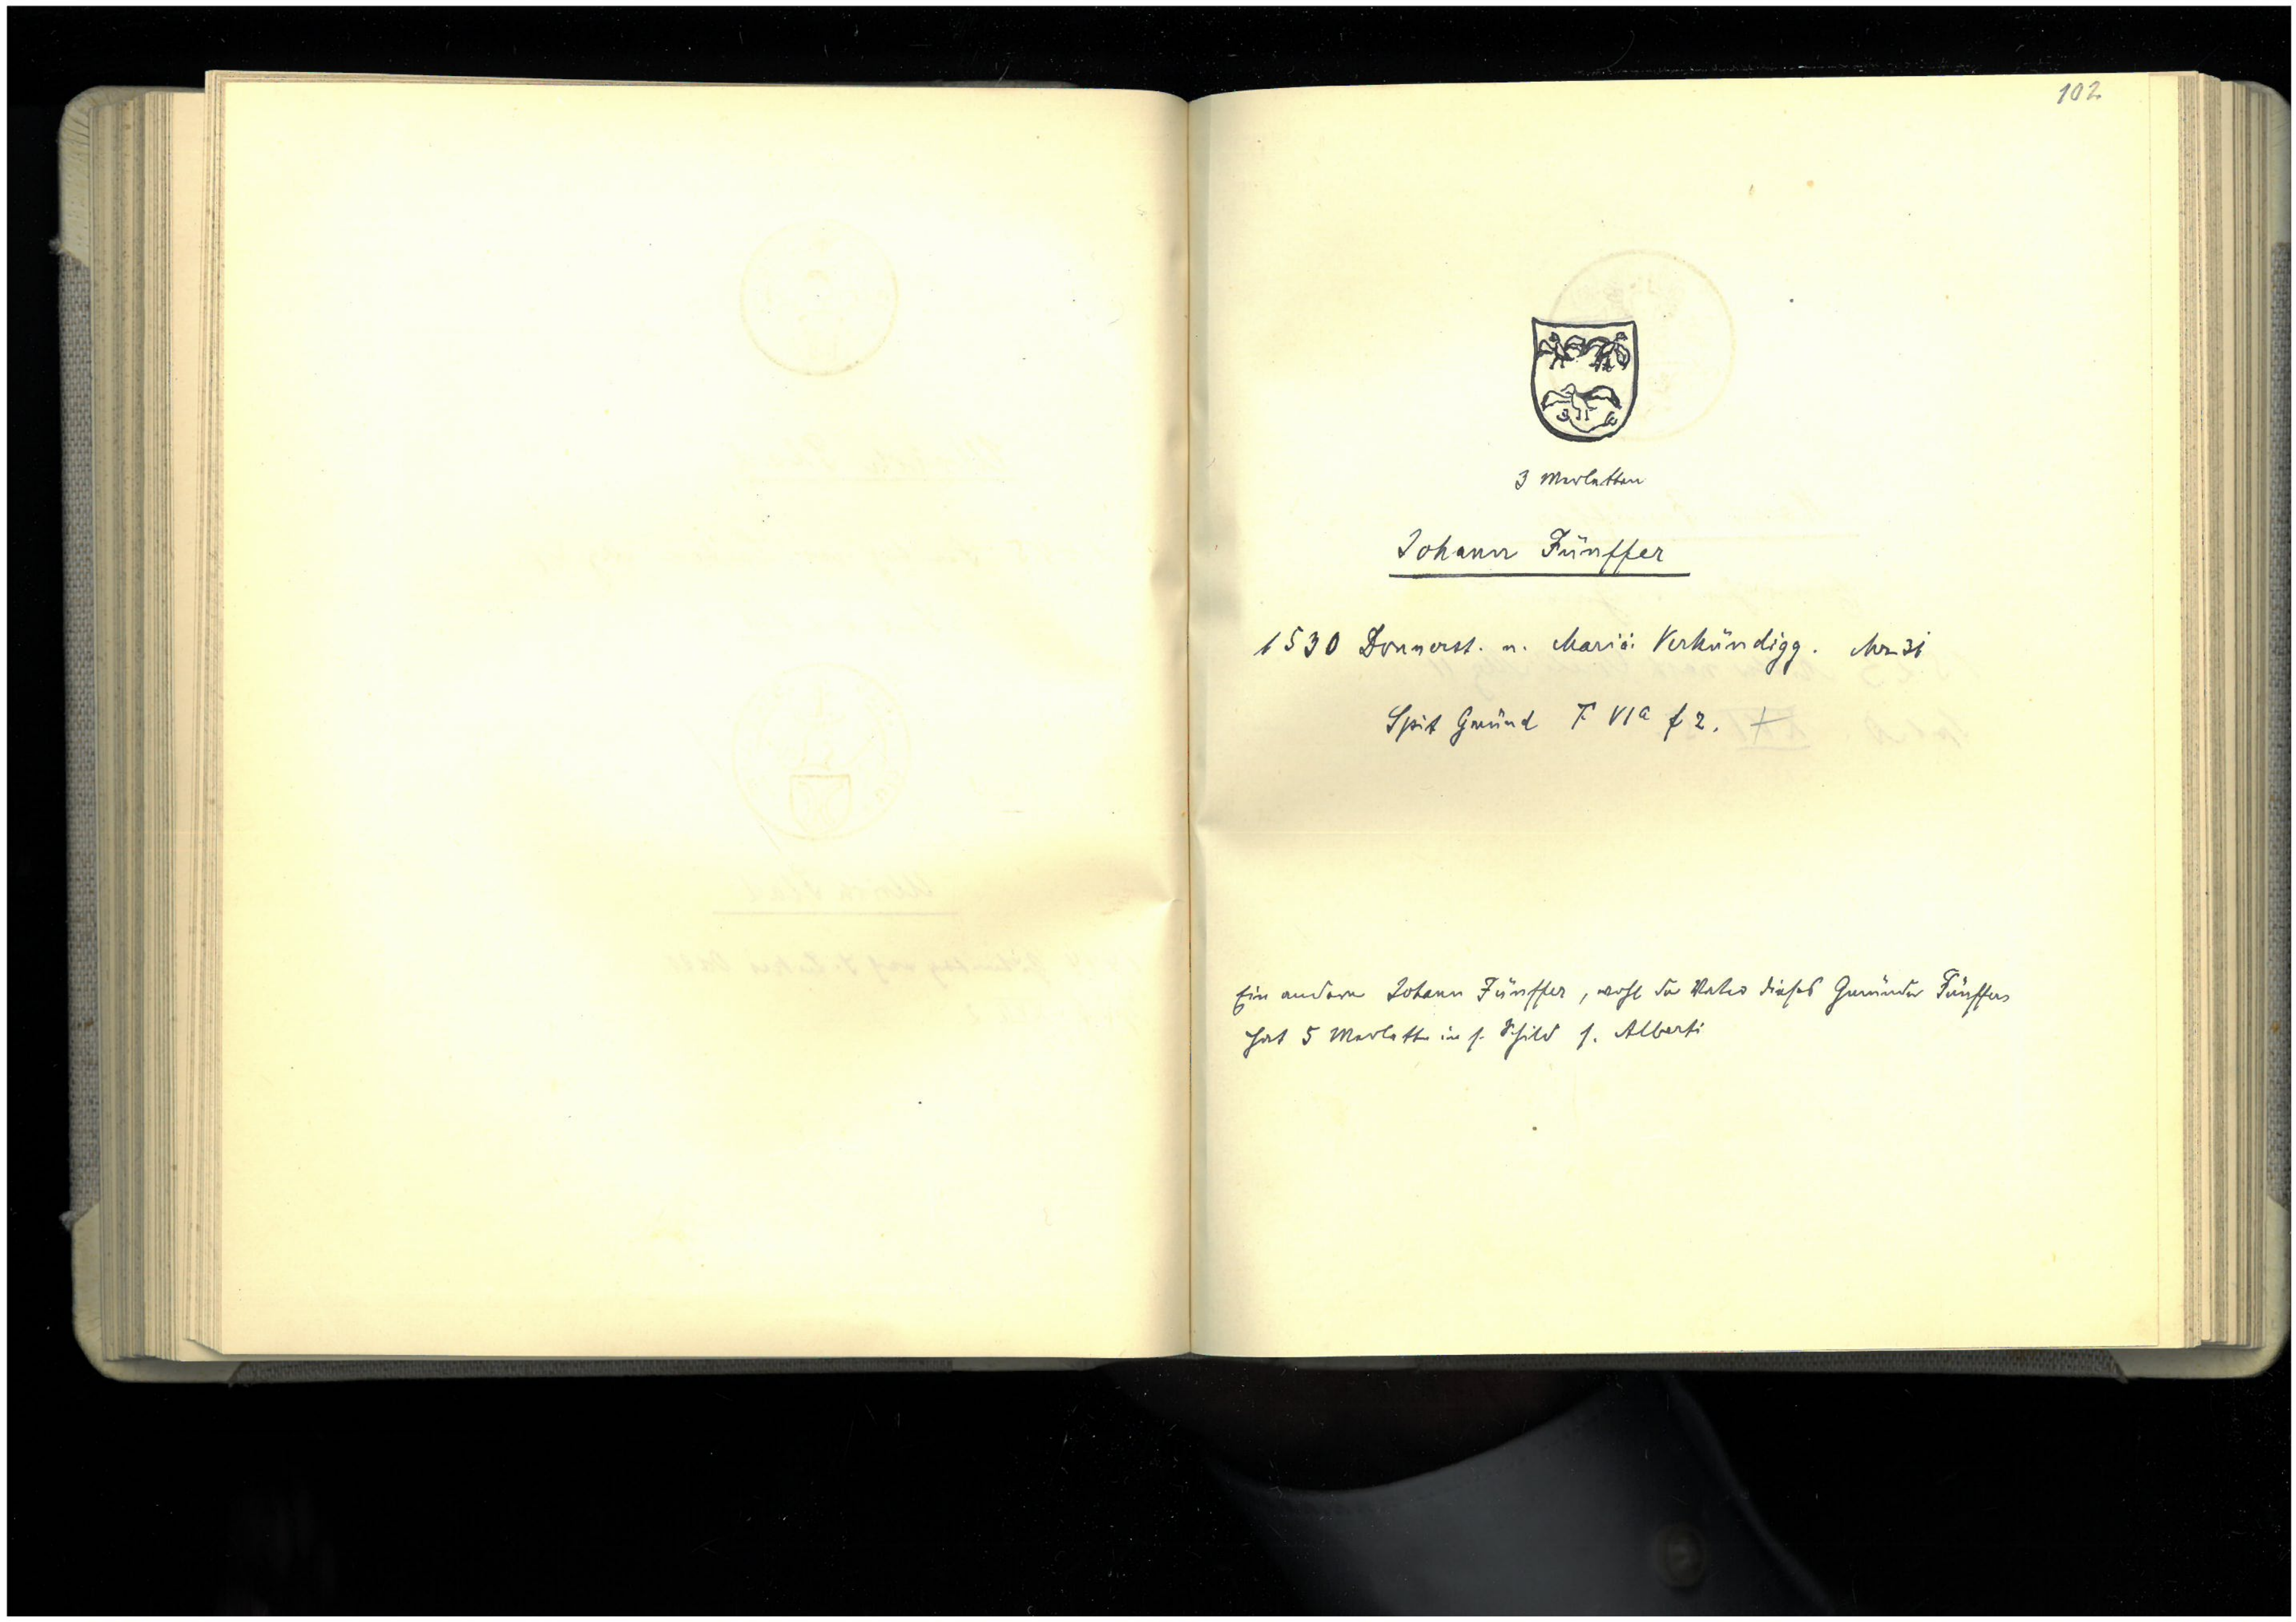 102
3 Merletten
Johann Fünffer
1530 Donnerst. n. Mariä Verkündigg. Mrz 31
Spit Gmünd F VIa f 2. +
Ein anderer Johann Fünffer, wohl der Vater dieses Gmünder Fünffers
hat 5 Merletten in s. Schild s. Alberti